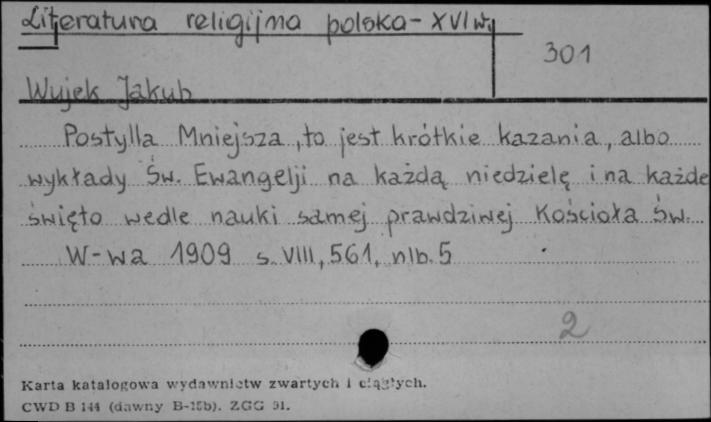 Literatura religijna polska - XVI w.
301
Wujek Jakub
Postylla Mniejsza, to jest krótkie kazania, albo
wykłady Św. Ewangelji na każdą niedzielę i na każde
święto wedle nauki samej prawdziwej Kościoła Św.
W-wa 1909 s. VIII, 561, nlb. 5
2
Karta katalogowa wydawnictw zwartych i ciągłych.
CWD B 144 (dawny B-15b). ZGG 91.